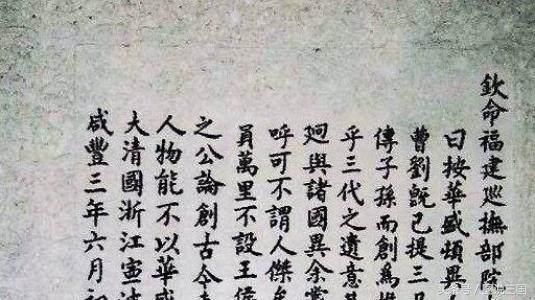 欽命福建巡撫部院
曰按華盛頓異
曹劉旣已提三
傳子孫而創為推
乎三代之遺意
廻與諸國異余嘗
呼可不謂人傑
員萬里不設王侯
之公論創古今
人物能不以華盛
大清國浙江寧波
咸豐三年六月初
头条号